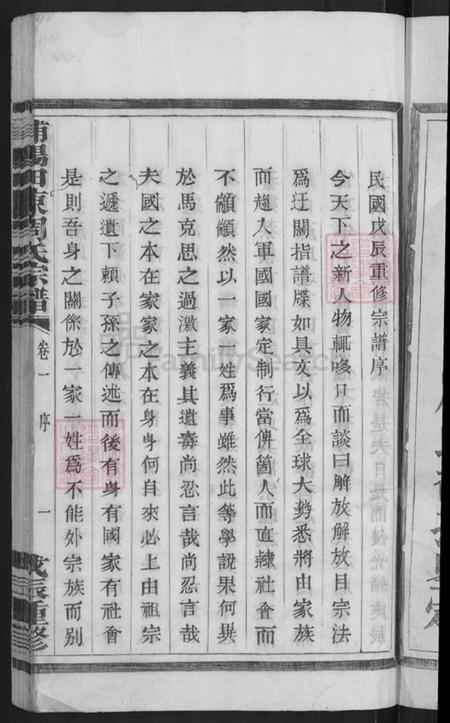 民國戊辰重修宗譜序
今天下之新人物輒哆口而談曰解放解放目宗法
爲迂闊指譜牒如具文以爲全球大勢悉將由家族
而趨人軍國國家定制行當倂箇人而直隷社會而
不顧顓然以一家一姓爲事雖然此等學說果何異
於馬克思之過激主義其遺毒尚忍言哉尚忍言哉
夫國之本在家家之本在身身何自來必上由祖宗
之遞遺下頼子孫之傳述而後有身有國家有社會
是則吾身之關係於一家一姓爲不能外宗族而別
浦陽田東周氏宗譜
卷一
序
一
戊辰重修
FamilySearch